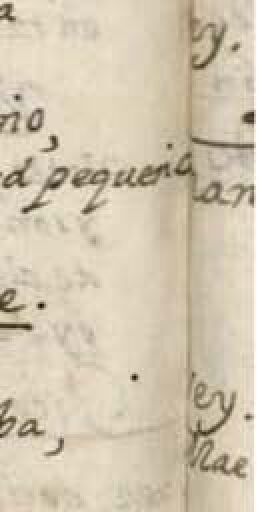 a
rio,
d pequeña
e.
ba,
ey.
an
ley.
Nae